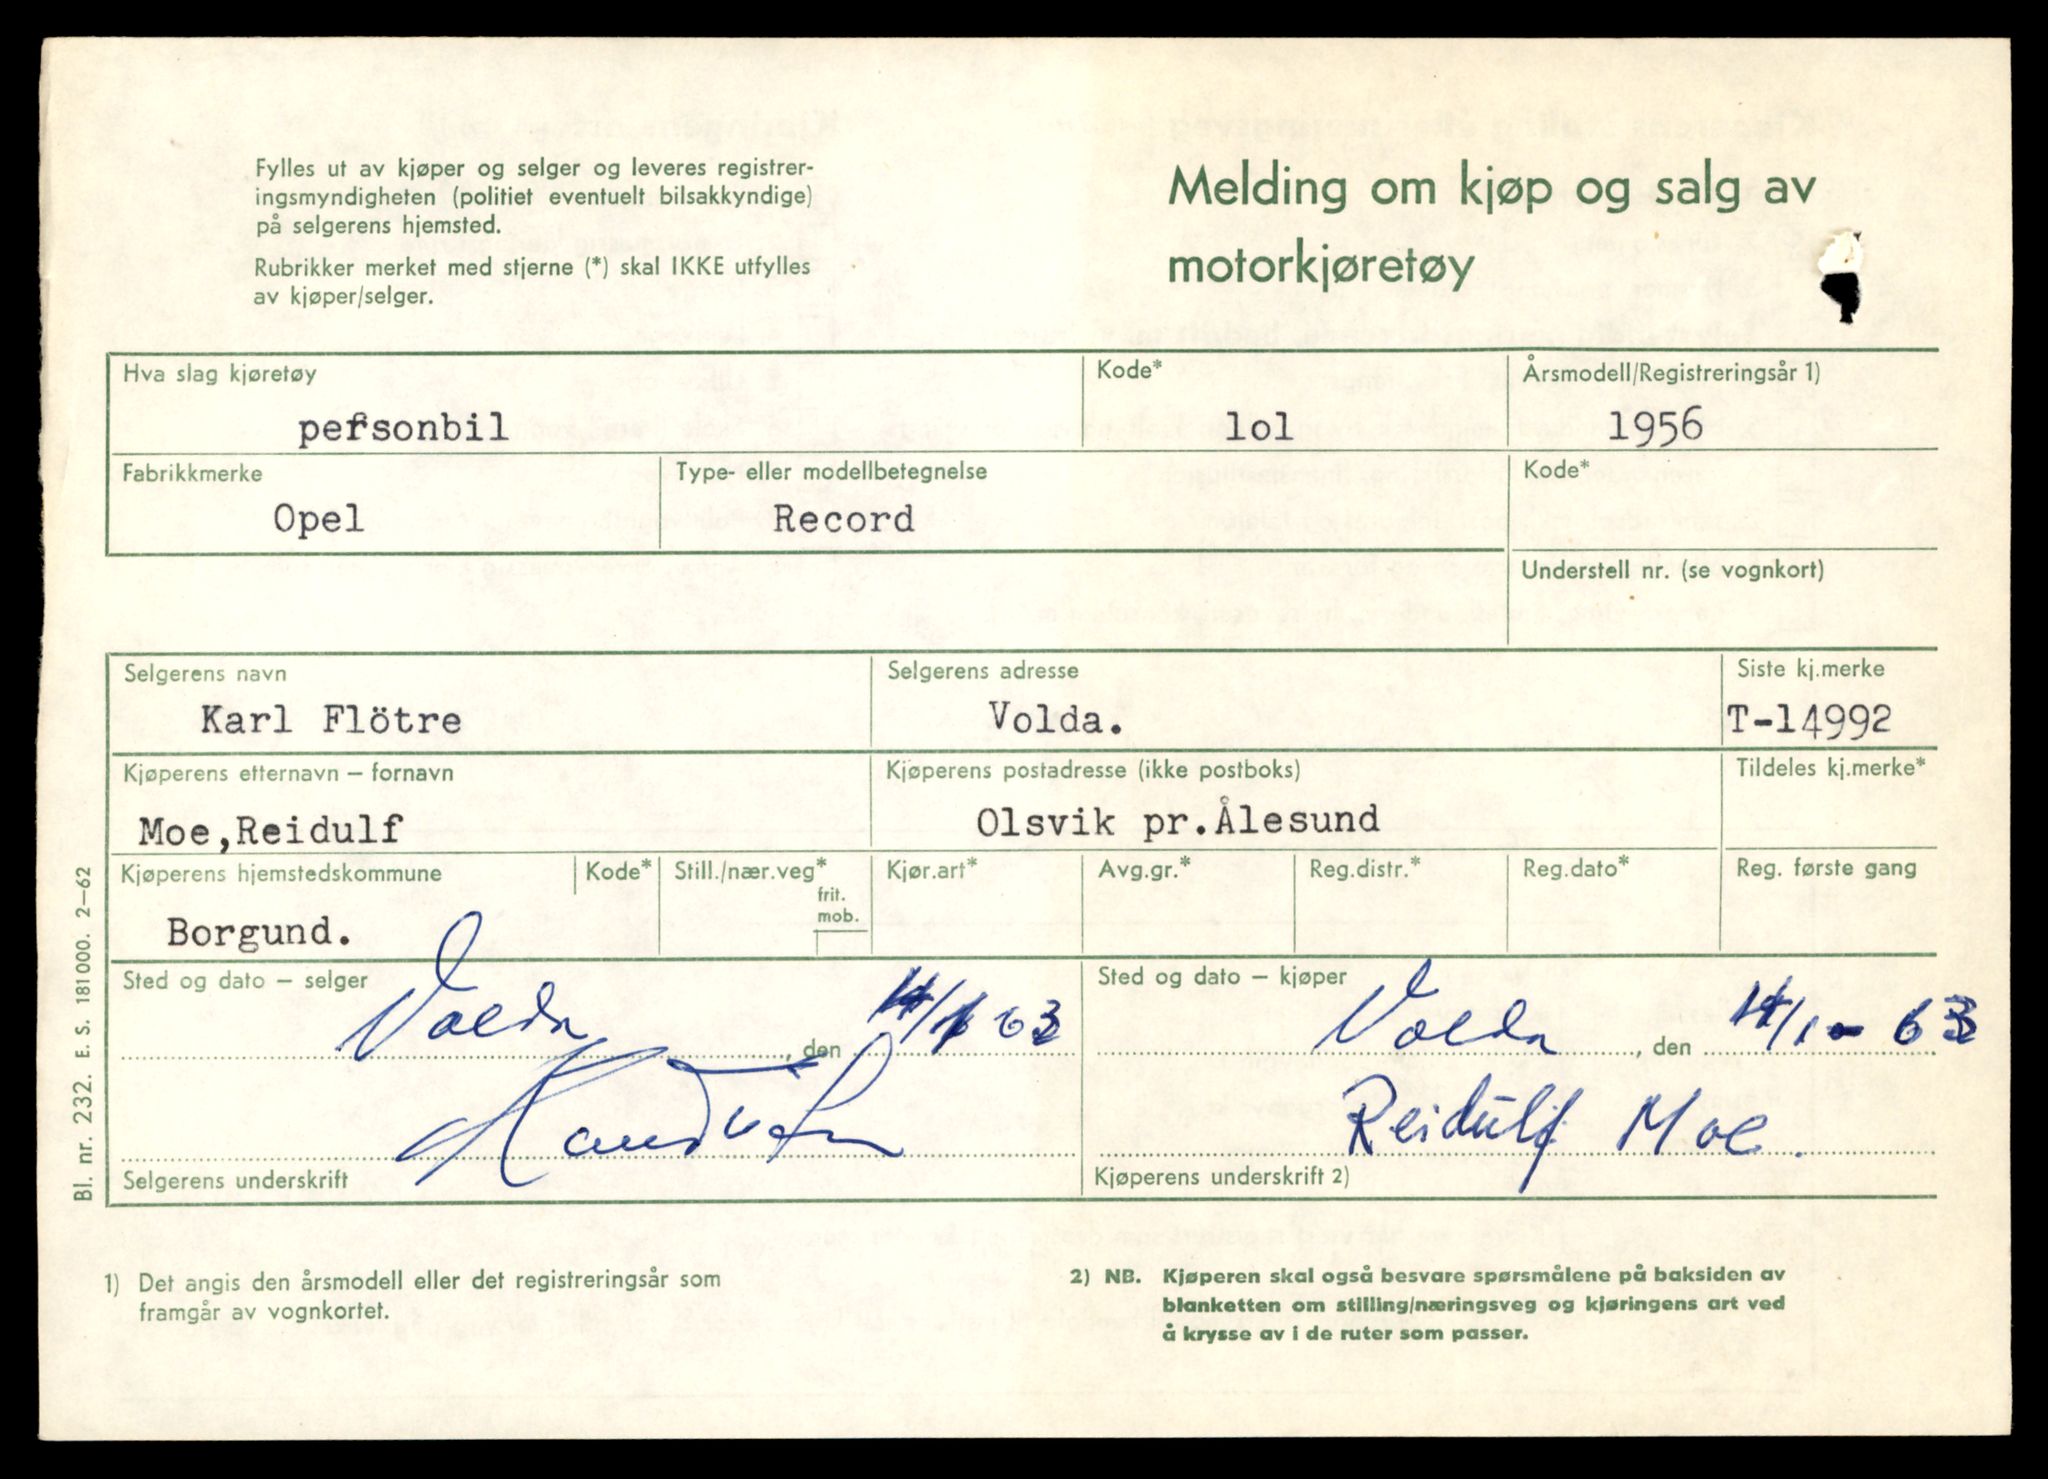 Fylles ut av kjøper og selger og leveres registrer-
ingsmyndigheten (politiet eventuelt bilsakkyndige)
på selgerens hjemsted.
Rubrikker merket med stjerne (*) skal IKKE utfylles
av kjøper/selger.
Melding om kjøp og salg av
motorkjøretøy
Hva slag kjøretøy
personbil
Kode*
lol
Årsmodell/Registreringsår 1)
1956
Fabrikkmerke
Opel
Type- eller modellbetegnelse
Record
Kode*
Understell nr. (se vognkort)
Selgerens navn
Karl Flötre
Selgerens adresse
Volda.
Siste kj.merke
T-14992
Kjøperens etternavn – fornavn
Moe,Reidulf
Kjøperens postadresse (ikke postboks)
Olsvik pr.Ålesund
Tildeles kj.merke*
Kjøperens hjemstedskommune
Borgund.
Kode*
Still./nær.veg*
frit.
mob.
Kjør.art*
Avg.gr.*
Reg.distr.*
Reg.dato*
Reg. første gang
Sted og dato – selger
Volda, den 63
Selgerens underskrift
Sted og dato – kjøper
Volda, den 63
Reidulf Moe.
Kjøperens underskrift 2)
Bl. nr. 232. E. S. 181000. 2–62
1) Det angis den årsmodell eller det registreringsår som
framgår av vognkortet.
2) NB. Kjøperen skal også besvare spørsmålene på baksiden av
blanketten om stilling/næringsveg og kjøringens art ved
å krysse av i de ruter som passer.